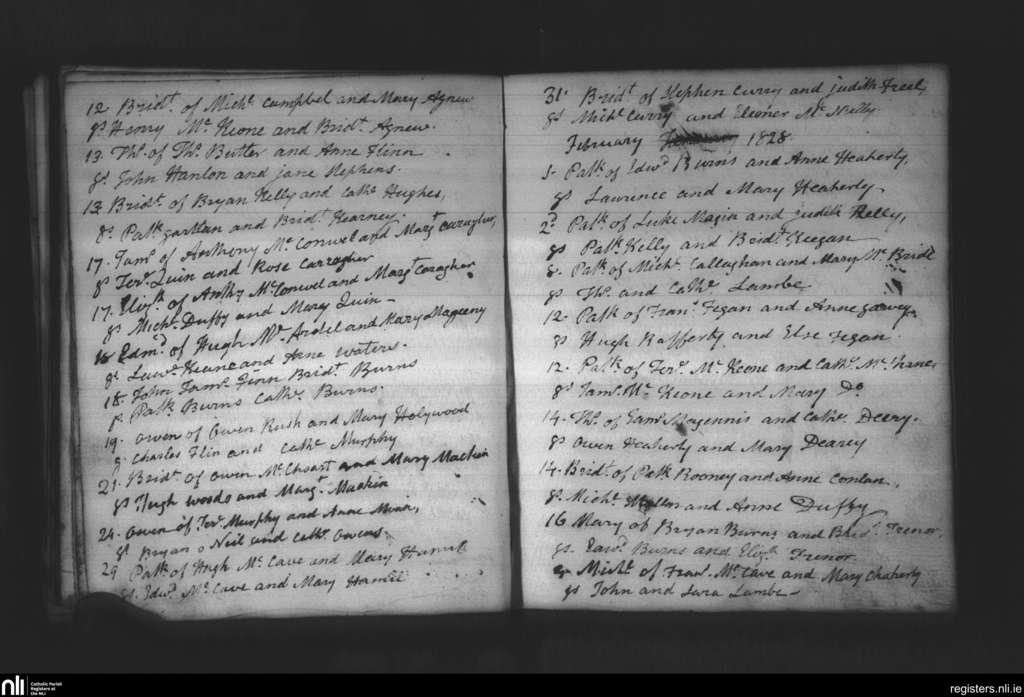 12. Bridt. of Michl. Campbel and Mary Agnew
gs Henry Mc. Keone and Bridt. Agnew.
13. Th: of Ths. Butter and Anne Flinn
gs John Hanlon and jane Stephens.
13 Bridt. of Bryan Kelly and Cathe Hughes,
gs Patk. gartlan and Bridt. Kearney.
17. Jams. of Anthony Mc. Conwel and Margt
gs Ter. Quin and Rose Carragher
17. of Anthy Mc.Conwel and Margt Caragher
gs Michl. Duffy and Mary Quin
18 Edmd. of Hugh Mc. Ardel and Mary
gs Lawe. Keane and Anne Waters.
18. John Jams. Finn Bridt. Burns
gs Patk. Burns Cathe. Burns.
19. Owen of Owen Rush and Mary Holywood
gs Charles Flin and Cathe Murphy
21. Bridt. of Owen Mc. and Mary Mackin
gs Hugh Woods and Margt. Mackin
24. Owen of Ter. Murphy and Anne
gs Bryan o Neil and Cathe. Owens.
29 Patk. of Hugh Mc. Cave and Mary Hamil
gs. Edwd. Mc. Cave and Mary Hamil
31. Bridt. of Stephen Curry and judith Freel,
gs Michl. Curry and Elenor Mc. Nelly
February 1828.
Patk. of Edwd. Burns and Anne Heaherty,
gs Lawrence and Mary Heaherty
2d. Patk. of Luke Magin and judith Kelly,
gs Patk. Kelly and Bridt. Keegan
Patk. of Michl. Callaghan and Mary Mc. Bride
gs Ths. and Cathe. Lambe
12. Patk of Frans. Fegan and Anne
gs Hugh Rafferty and Else Fegan.
12. Patk. of Ter. Mc. Keone and Cathe. Mc. Shane,
gs Jams. Mc Keone and Mary Do
14. Ths. of Magennis and Cathe. Deery.
gs Owen Heaherty and Mary Dearey
14. Bridt. of Patk Rooney and Anne Conlan,
gs. Michl. and Anne Duffy
16. Mary of Bryan Burns and Bridt. Trenor,
gs. Edwd. Burns and Elizth Trenor.
Michl. of Frans. Mc. Cave and Mary
gs John and Sara Lambe
nli
Catholic Parish
Registers at
the NLI
registers.nli.ie